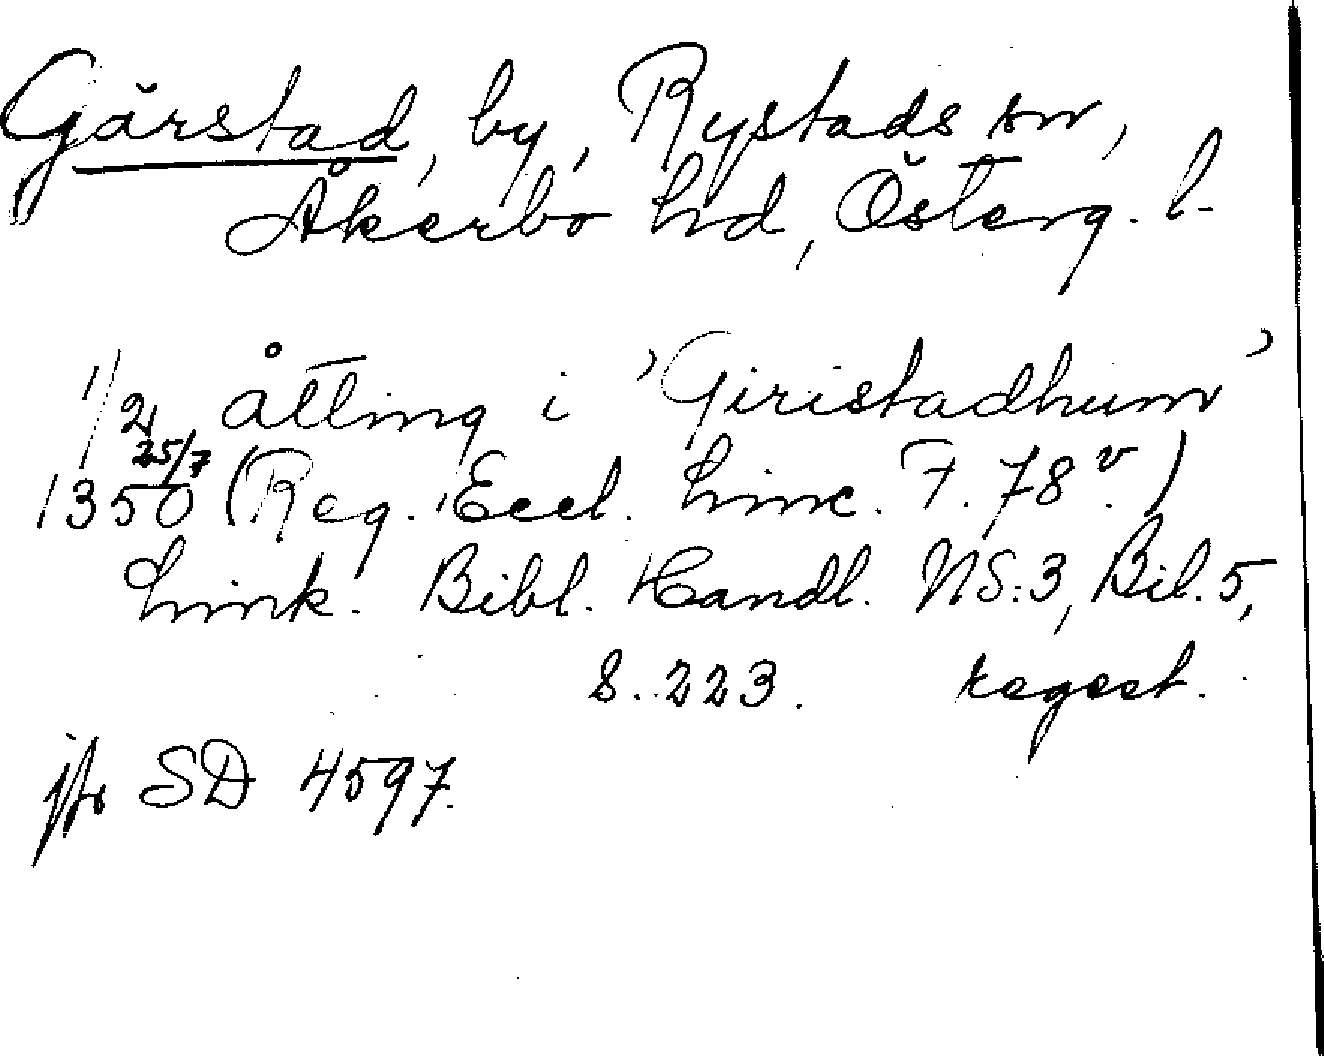 Gärstad, by, Rystads sn,
Åkerbo hd, Österg. l.
1/2 åtting i 'Giristadhum'
25/7
1350 (Reg. Eccl. Linc. F. 78 v.)
Link. Bibl. Handl. NS:3, Bil. 5,
S. 223. regest.
jfr SD 4597.